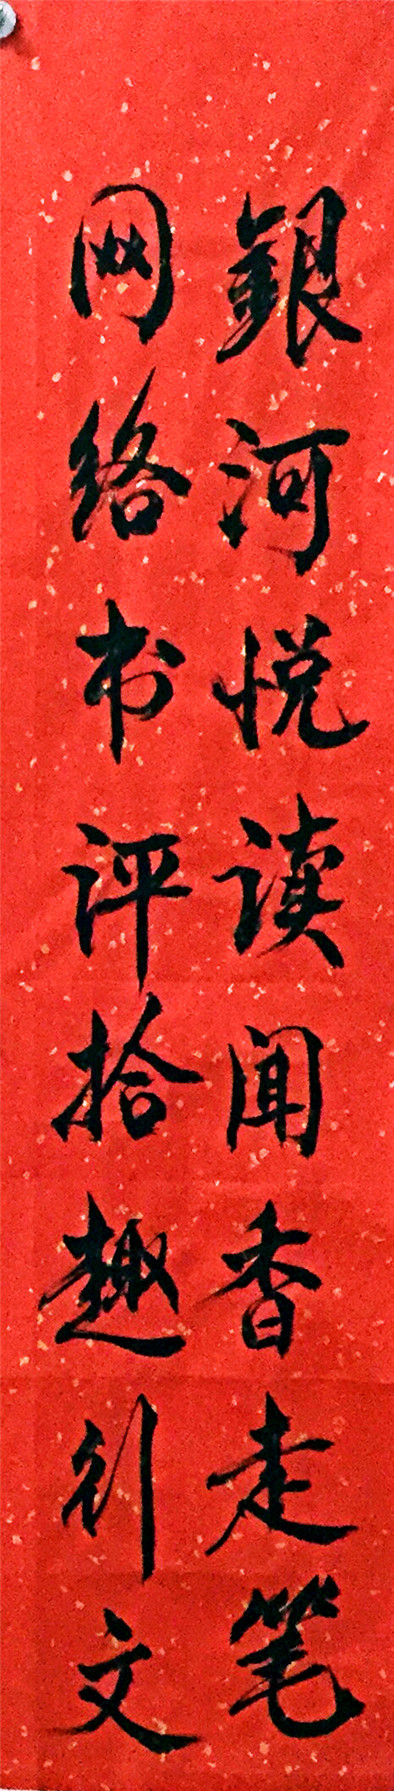 銀河悦读闻香走笔
网络书评拾趣行文